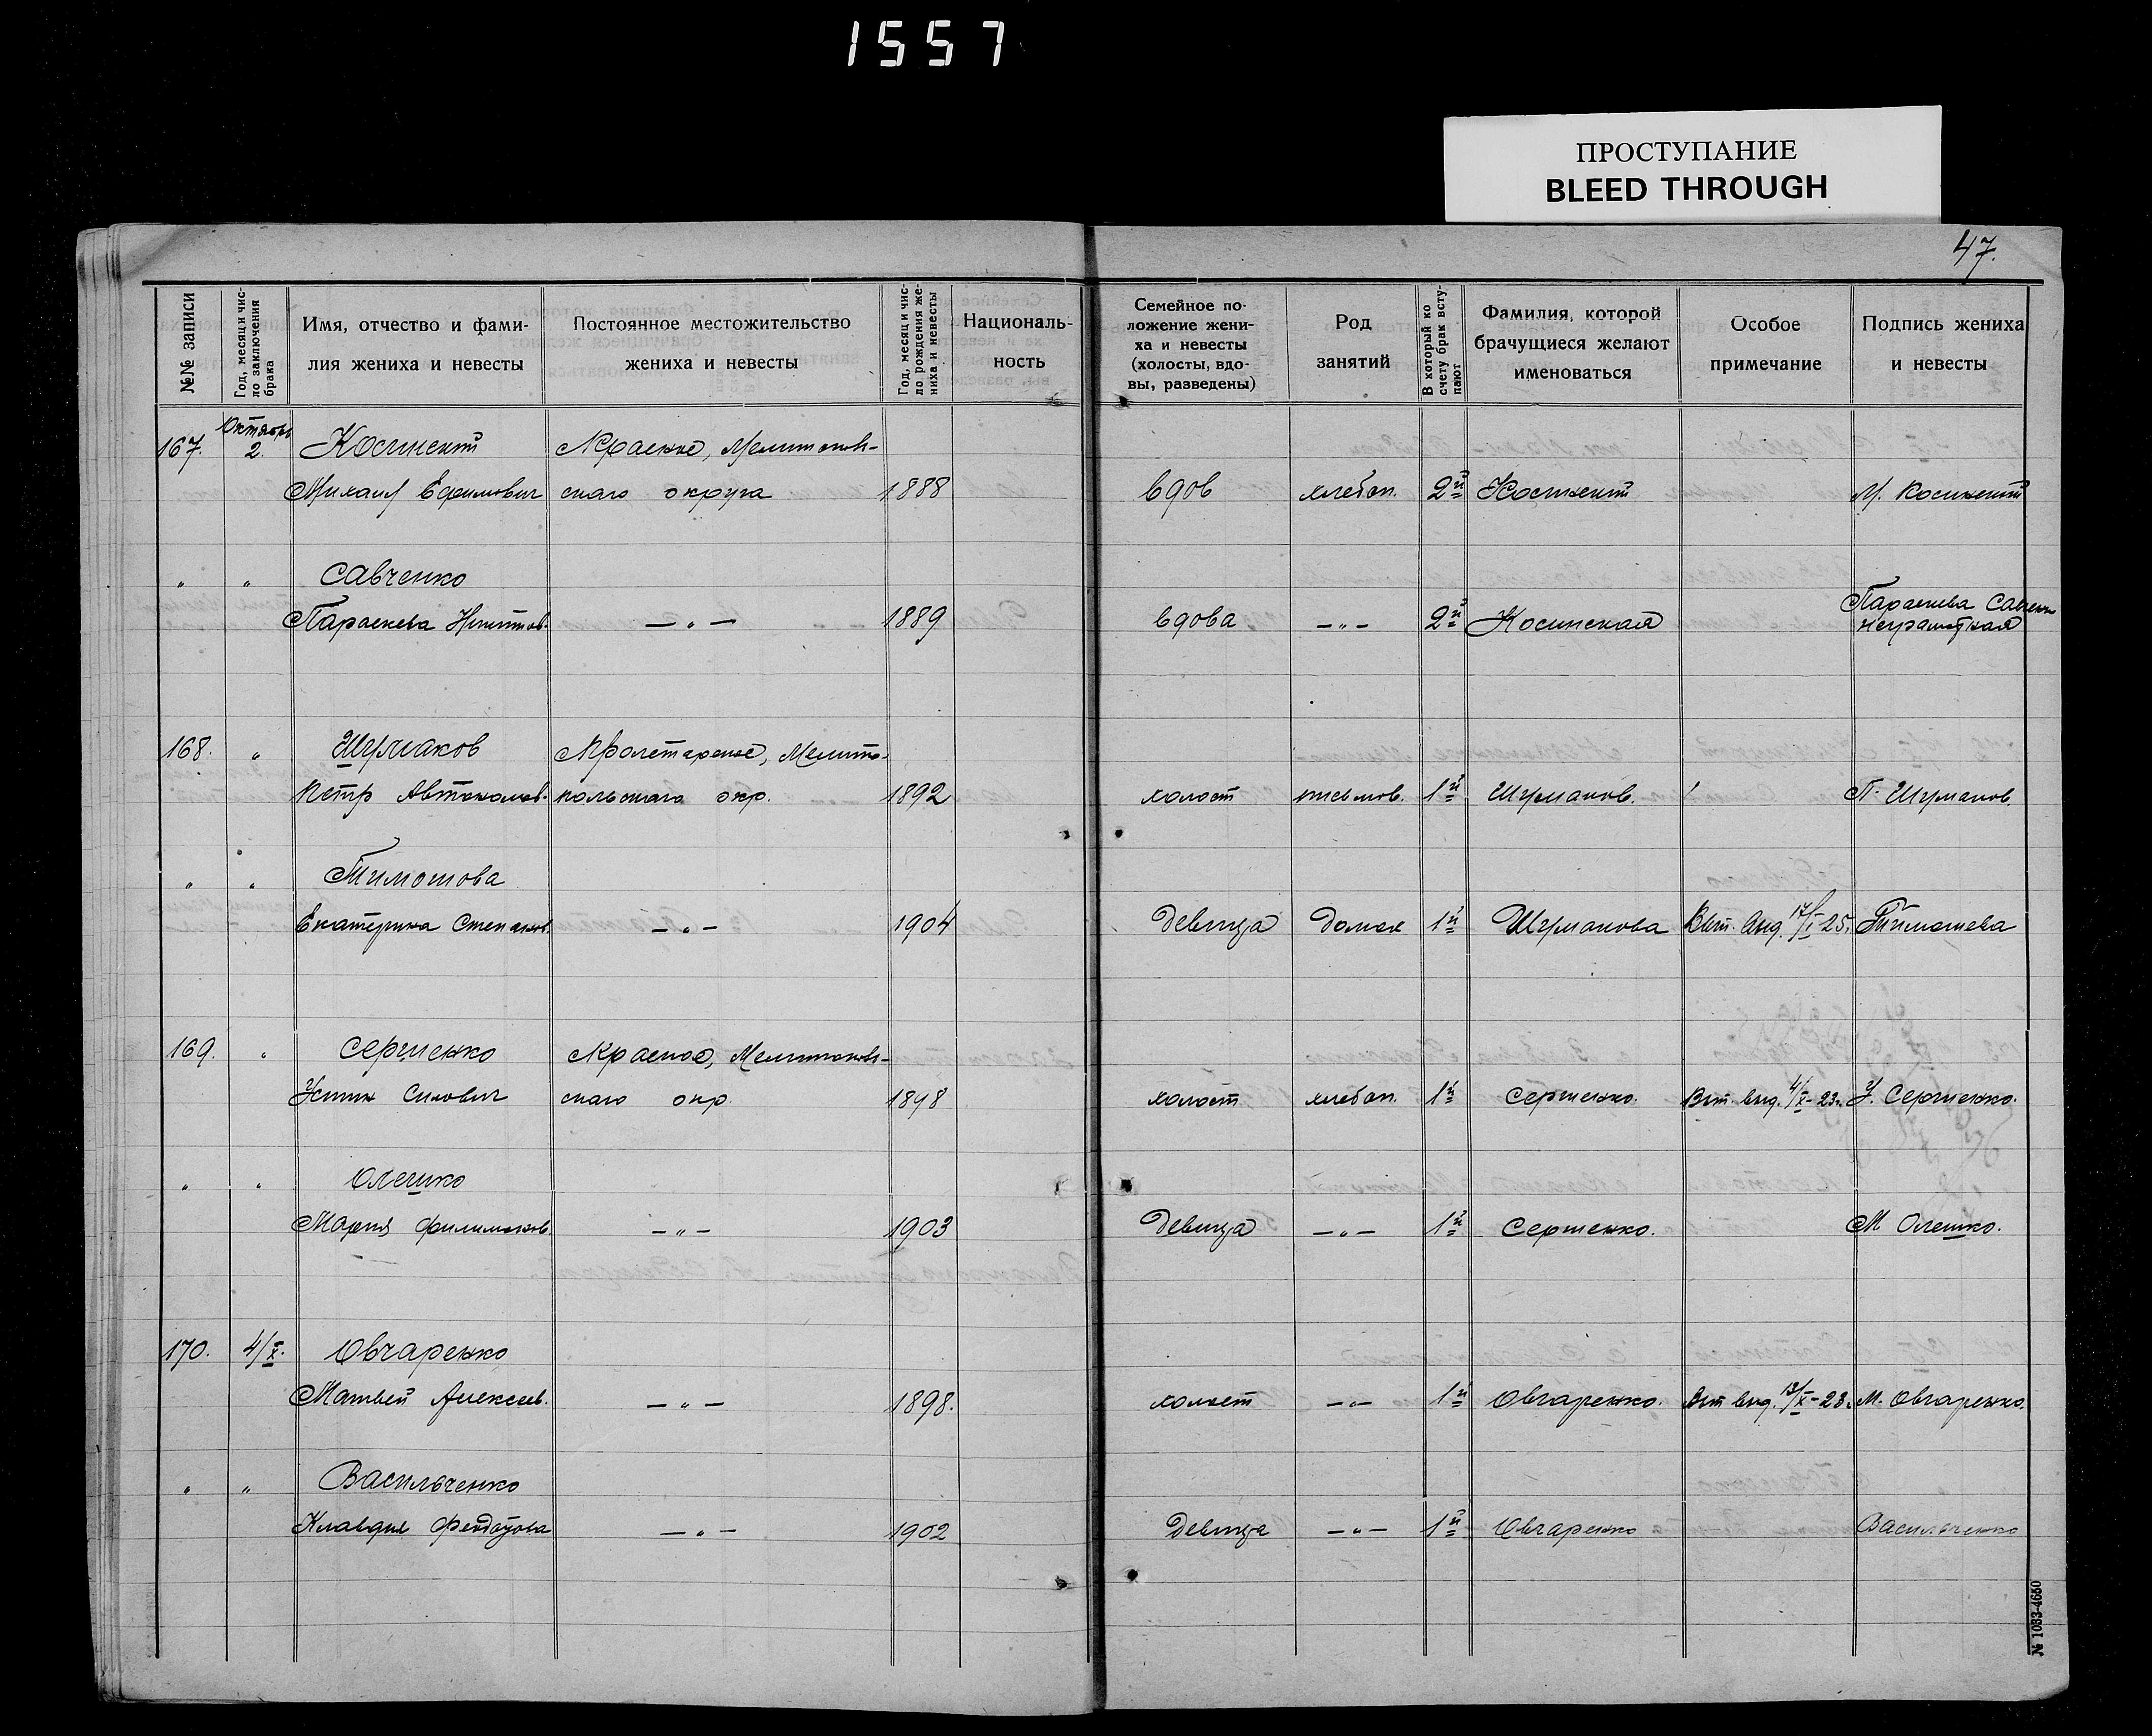 1557
ПРОСТУПАНИЕ
BLEED THROUGH
47.
№№ записи
Год, месяц и чис-
ло заключения
брака
Имя, отчество и фами-
лия жениха и невесты
Постоянное местожительство
жениха и невесты
Год, месяц и чис-
ло рождения же-
ниха и невесты
Националь-
ность
Семейное по-
ложение жени-
ха и невесты
(холосты, вдо-
вы, разведены)
Род
занятий
В который ко
счету брак всту-
пают
Фамилия, которой
брачущиеся желают
именоваться
Особое
примечание
Подпись жениха
и невесты
167. Октябрь 2. Косинский Мелитополь-
Михаил Ефимович скаго округа 1888 вдов хлебоп. 2й Косинский М. Косинский
" " Савченко
Параскева Никитов. — " — 1889 вдова — " — 2й Косинская Параскева
неграмотная
168. " Шурмаков Пролетарское, Мелито-
Петр Автономов. польскаго окр. 1892 холост письмов. 1й Шурмаков. П. Шурмаков.
" " Тимошова
Екатерина Степанов. — " — 1904 девица домох 1й Шурмакова 25. Тимошева
169. " Сергиенко Красное, Мелитополь-
Устин скаго окр. 1898 холост хлебоп. 1й Сергиенко. Вып. выд. 4/X-23г. У. Сергиенко.
" " Олешко
Мария Филимонов. — " — 1903 девица — " — 1й Сергиенко. М Олешко.
170. 4/X. Овчаренко
Матвей Алексеев. — " — 1898. холост — " — 1й Овчаренко. Вып выд. /X-23г. М. Овчаренко.
" " Васильченко
Клавдия — " — 1902 девица — " — 1й Овчаренко Васильченко
№ 1033-4650